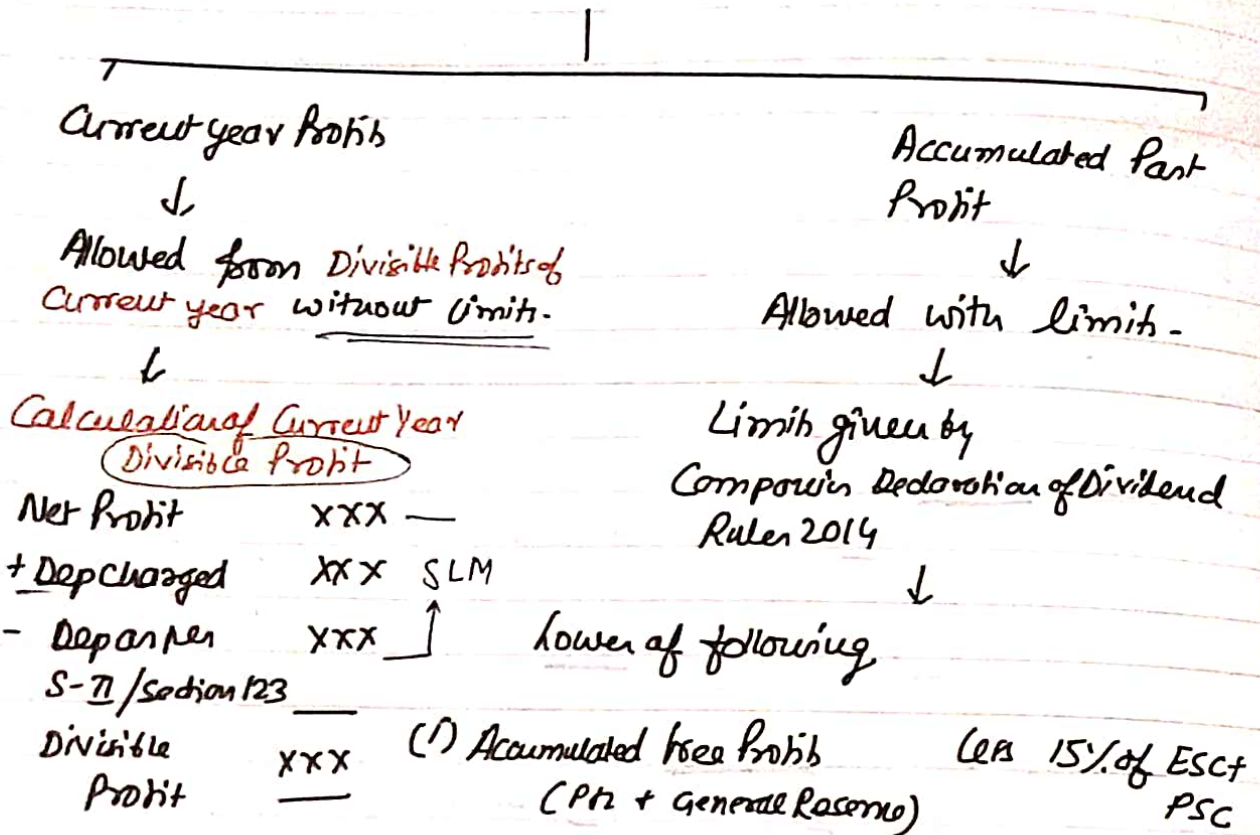 Current year Profits
↓
Allowed from Divisible Profits of
Current year without limits.
↓
Calculation of Current Year
Divisible Profit
Net Profit xxx —
+ Dep Charged xxx SLM
- Dep as per xxx
S-II/Section 123
Divisible xxx
Profit
Accumulated Past
Profit
↓
Allowed with limits -
↓
Limits given by
Companies Declaration of Dividend
Rules 2014
↓
Lower of following
(1) Accumulated free Profits Less 15% of ESC+
(P/L + General Reserve) PSC